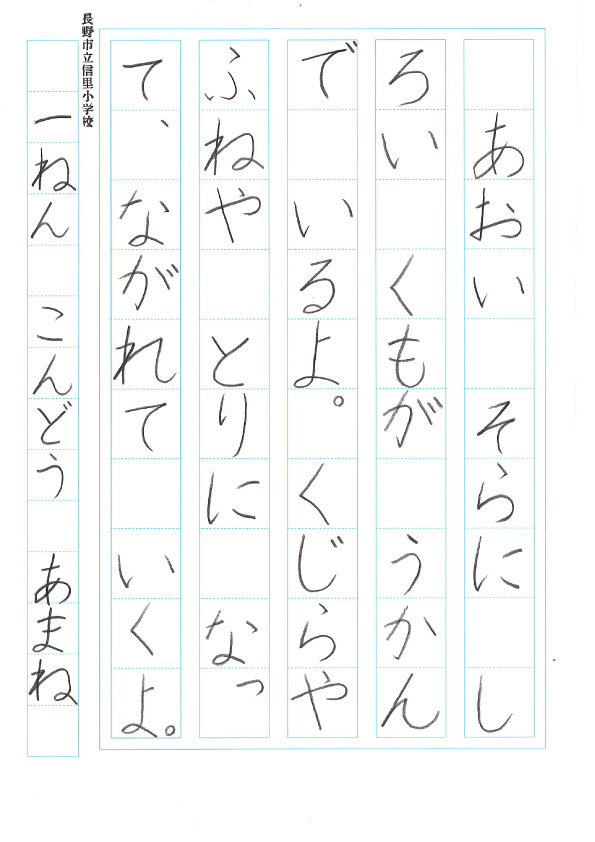 あおい　そらに　し
ろい　くもが　うかん
で　いるよ。　くじらや
ふねや　とりに　なっ
て、ながれて　いくよ。
長野市立信里小学校
一ねん　こんどう　あまね